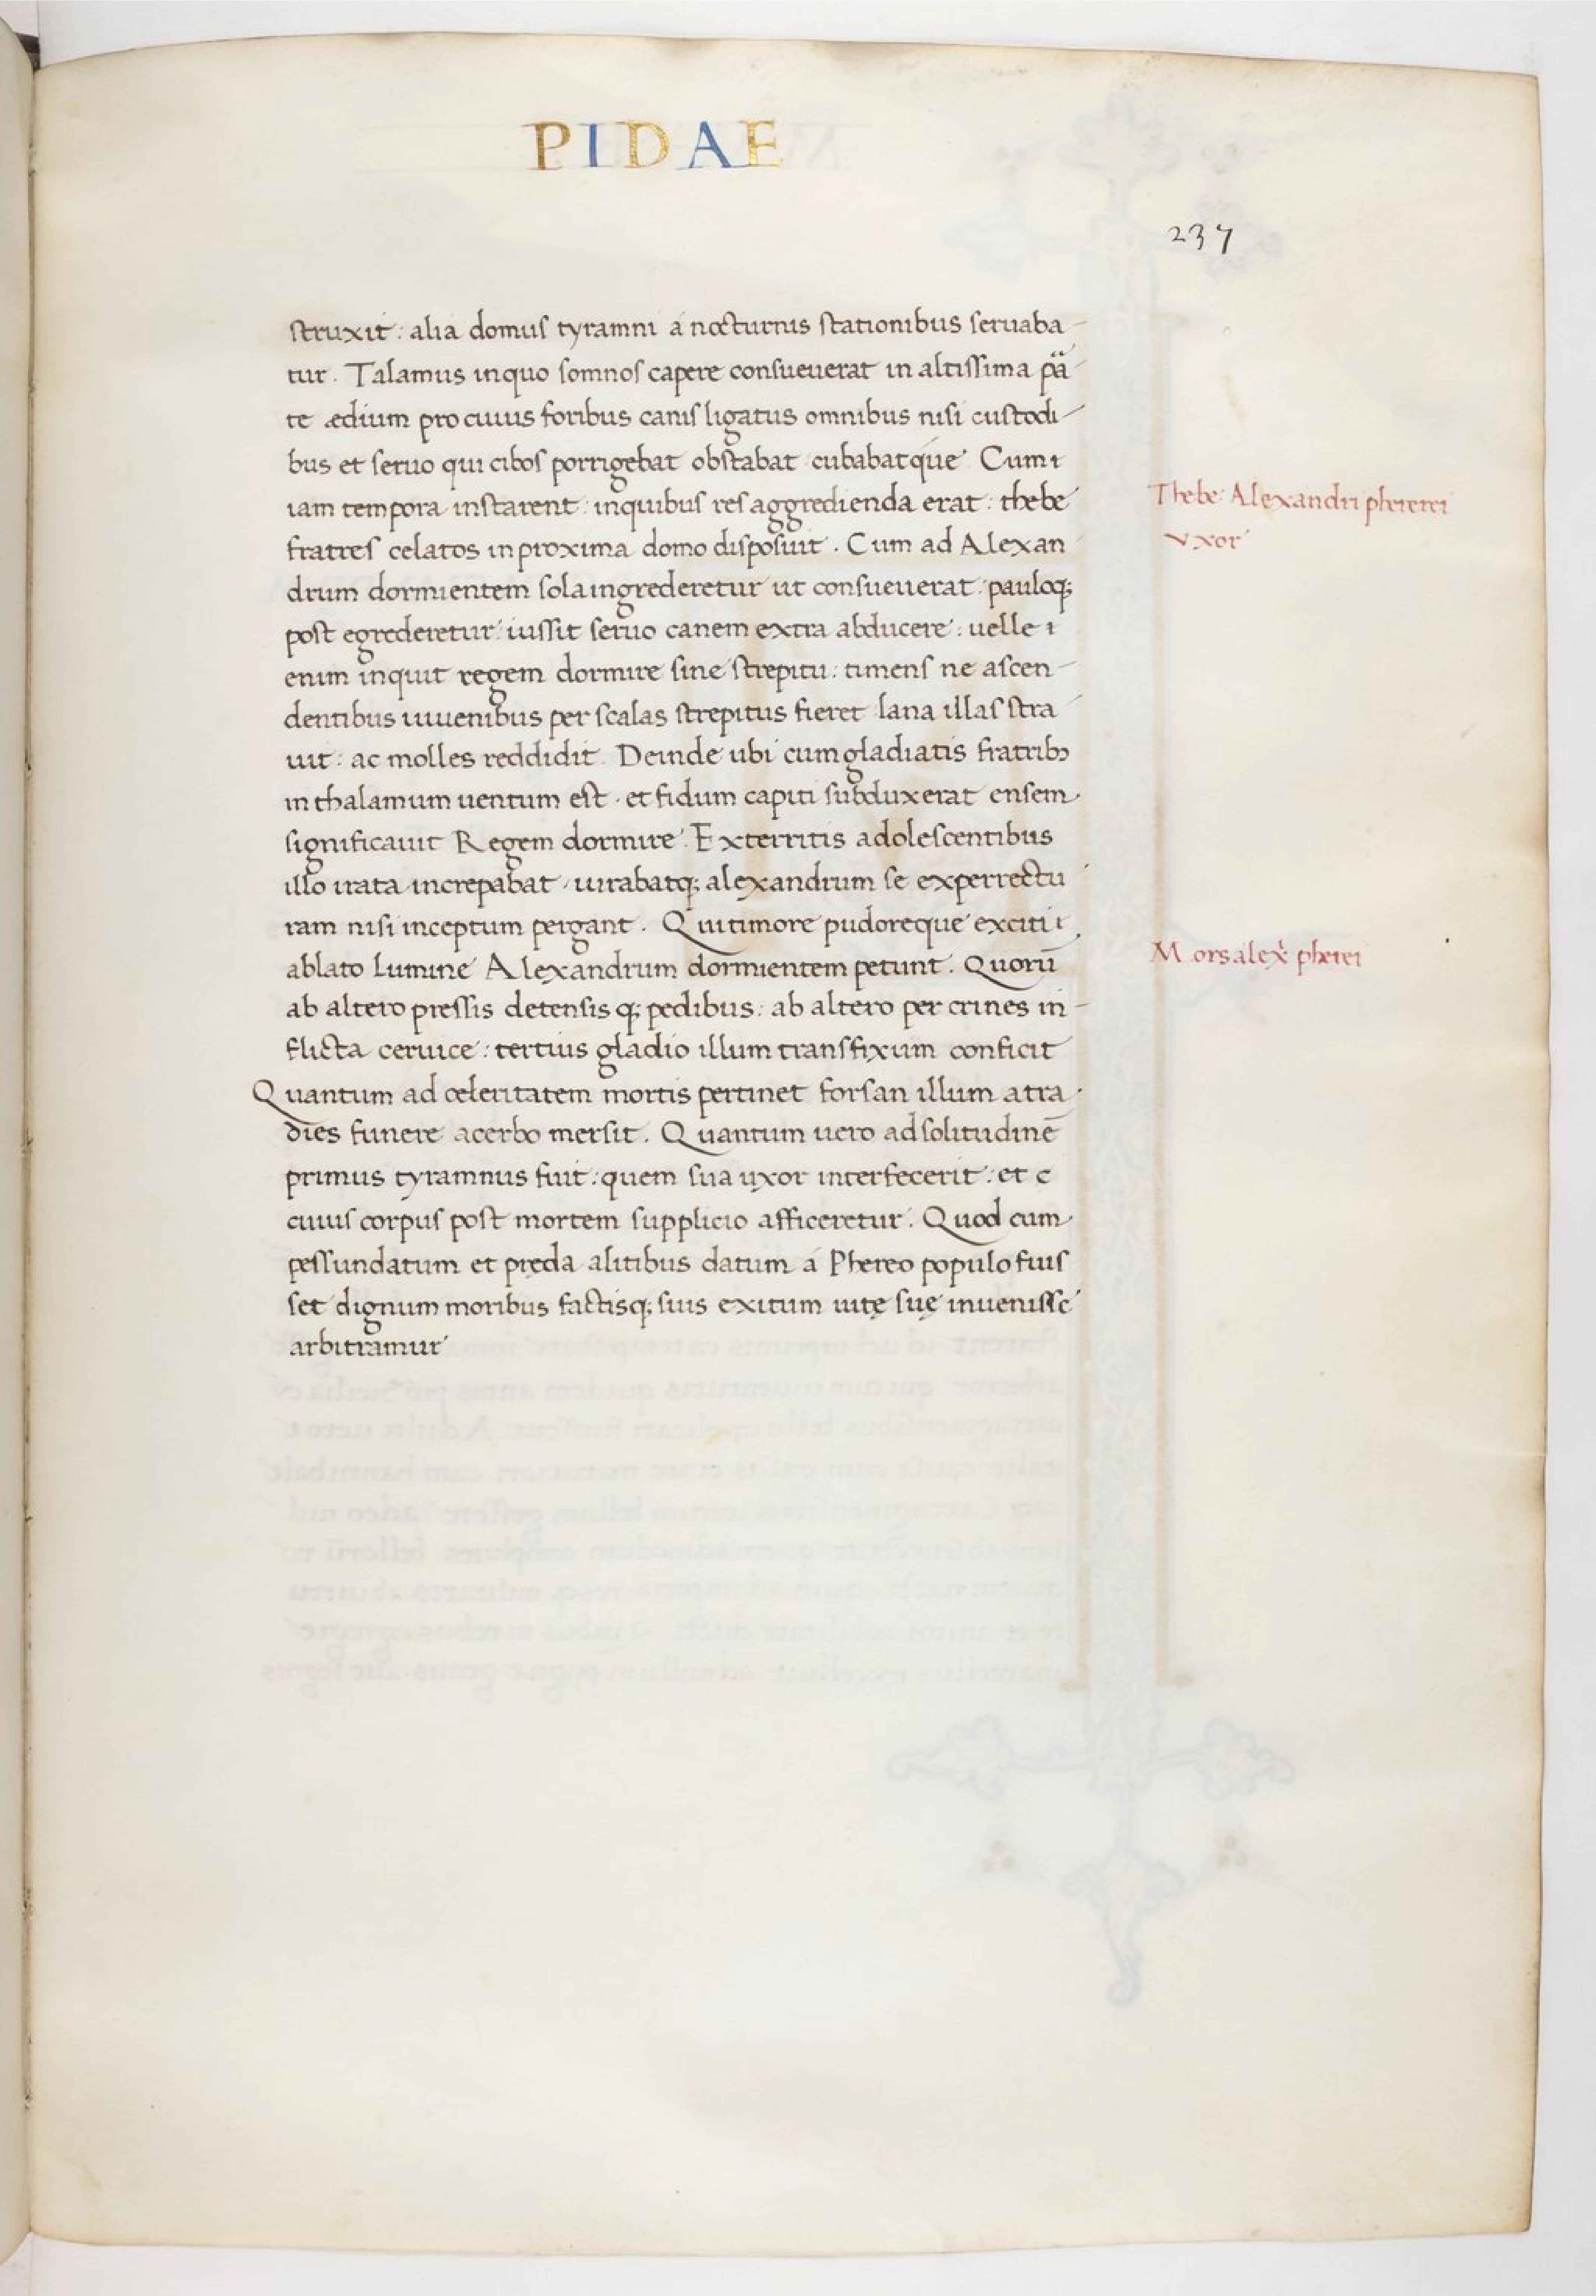 PIDAE
237
struxit: alia domus tyramni á nocturnis stationibus seruaba-
tur. Talamus inquo somnos capere consueuerat in altissima pä-
te ædium pro cuius foribus canis ligatus omnibus nisi custodi-
bus et seruo qui cibos porrigebat obstabat cubabatque Cum ı
iam tempora instarent: inquibus res aggredienda erat: thebe
Thebe Alexandri phererei
vxor
fratres celatos in proxima domo disposuit. Cum ad Alexan
drum dormientem sola ingrederetur ut consueuerat: pauloq;
post egrederetur: iussit seruo canem extra abducere: uelle ı
enim inquit regem dormire sine strepitu: timens ne ascen-
dentibus iuuenibus per scalas strepitus fieret lana illas stra
uit: ac molles reddidit. Deinde ubi cum gladiatis fratribɔ
in thalamum uentum est. et fidum capiti subduxerat ensem
significauit Regem dormire. Exterritis adolescentibus
illo irata increpabat, iurabatq; alexandrum se experrectu
ram nisi inceptum pergant. Qui timore pudoreque exciti ı
ablato lumine Alexandrum dormientem petunt. Quorū
Mors alex̃ pherei
ab altero pressis detensisq; pedibus: ab altero per crines in-
flicta ceruice: tertius gladio illum transfixum conficit
Quantum ad celeritatem mortis pertinet forsan illum atra
dies funere acerbo mersit. Quantum uero ad solitudinē
primus tyramnus fuit: quem sua uxor interfecerit: et c
cuius corpus post mortem supplicio afficeretur. Quod cum
pessundatum et pręda alitibus datum á Phereo populo fuis
set dignum moribus factisq; suis exitum uitę suę inuenisse
arbitramur